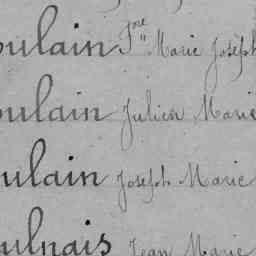 oulain Fçois Marie Joseph
oulain Julien Marie
oulain Joseph Marie
oulnais Jean Marie